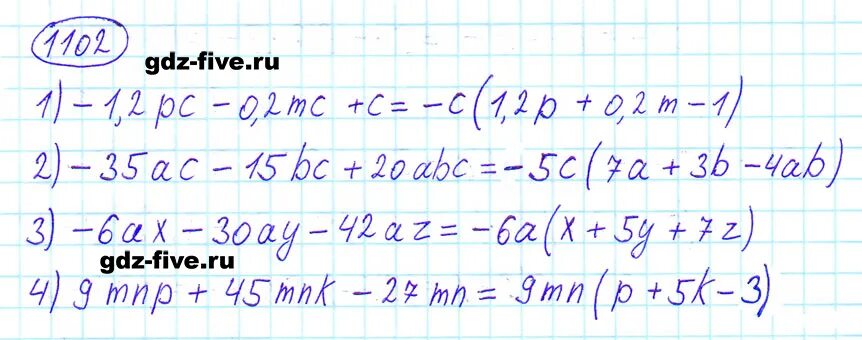 1102
gdz-five.ru
1) -1,2pc - 0,2mc + c = -c(1,2p + 0,2m - 1)
2) -35ac - 15bc + 20abc = -5c(7a + 3b - 4ab)
3) -6ax - 30ay - 42az = -6a(x + 5y + 7z)
gdz-five.ru
4) 9mnp + 45mnk - 27mn = 9mn(p + 5k - 3)